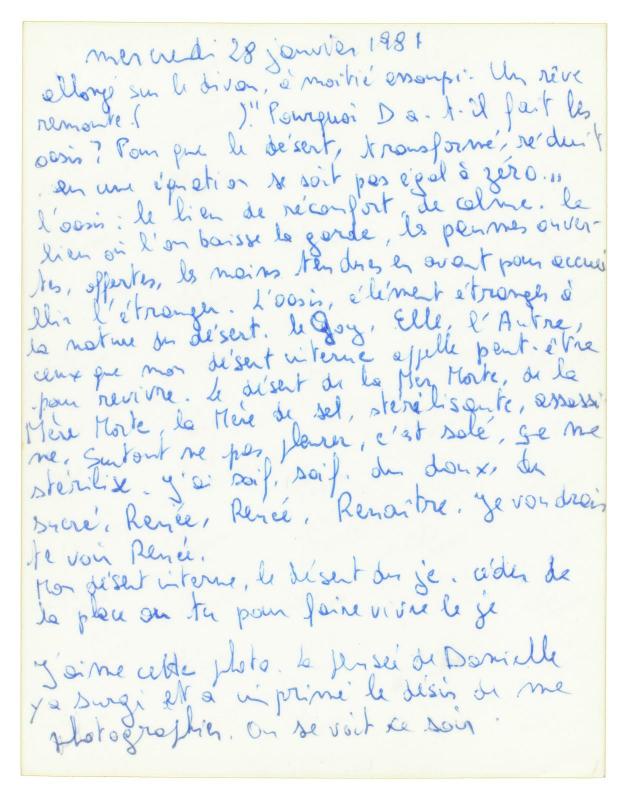 mercredi 28 janvier 1981
allongé sur le divan, à moitié assoupi. Un rêve
remonte. ( )." Pourquoi D a-t-il fait les
oasis? Pour que le désert, transformé, réduit
en une équation se soit pas égal à zéro..."
l'oasis : le lieu de réconfort, de calme. le
lieu où l'on baisse la garde, les paumes ouver-
tes, offertes, les mains tendues en avant pour accuei
llir l'étranger. L'oasis, élément étranger à
la nature du désert. le Goy, Elle, l'Autre,
ceux que mon désert interne appelle peut-être
pour revivre. Le désert de la Mer Morte, de la
Mère Morte, la Mère de sel, stérilisante, assassi
ne. Surtout ne pas pleurer, c'est salé, ça me
stérilise. J'ai soif, soif. du doux, du
sucré, Renée, Renée, Renaître. Je voudrais
te voir Renée.
Mon désert interne, le désert du je. céder de
la place au tu pour faire vivre le je
J'aime cette photo. La pensée de Danielle
y a surgi et a imprimé le désir de me
photographier. On se voit ce soir.